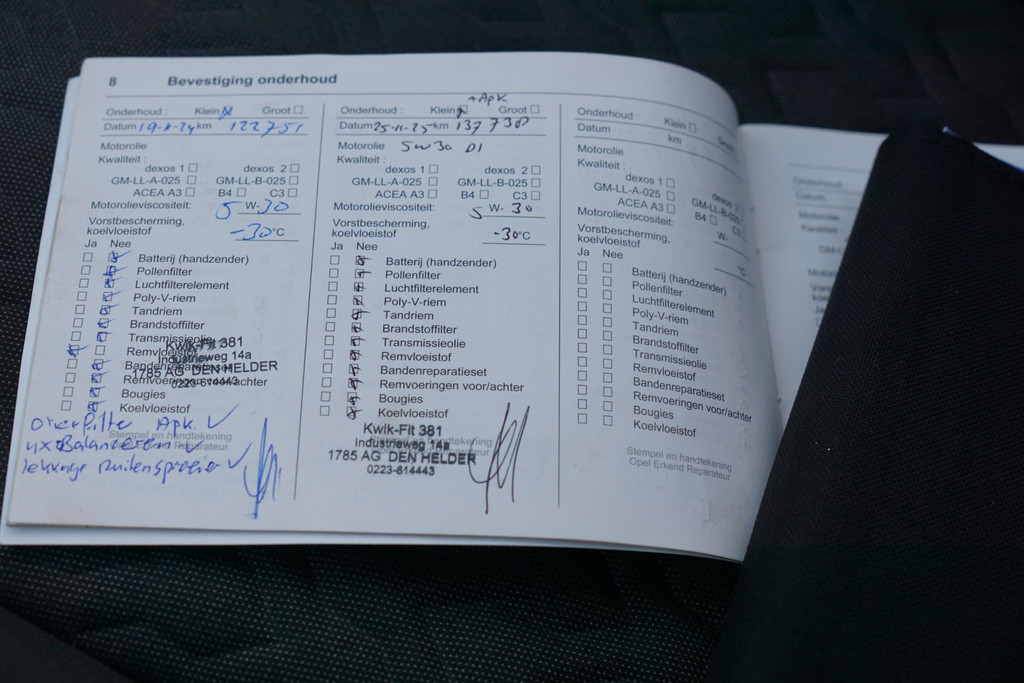 8 Bevestiging onderhoud
Onderhoud : Klein Groot
Datum 19-8-24 km 122751
Motorolie
Kwaliteit :
dexos 1 dexos 2
GM-LL-A-025 GM-LL-B-025
ACEA A3 B4 C3
Motorolieviscositeit: 5 W- 30
Vorstbescherming,
koelvloeistof -30°C
Ja Nee
Batterij (handzender)
Pollenfilter
Luchtfilterelement
Poly-V-riem
Tandriem
Brandstoffilter
Transmissieolie
Remvloeistof
Bandenreparatieset
Remvoeringen voor/achter
Bougies
Koelvloeistof
Kwik-Fit 381
Industrieweg 14a
1785 AG DEN HELDER
0223-614443
Apk
4x Balanceren
lekkage ruitensproeier
Stempel en handtekening
Opel Erkend Reparateur
+ Apk
Onderhoud : Klein Groot
Datum 25-11-25 km 137730
Motorolie 5W30 D1
Kwaliteit :
dexos 1 dexos 2
GM-LL-A-025 GM-LL-B-025
ACEA A3 B4 C3
Motorolieviscositeit: 5 W- 30
Vorstbescherming,
koelvloeistof -30°C
Ja Nee
Batterij (handzender)
Pollenfilter
Luchtfilterelement
Poly-V-riem
Tandriem
Brandstoffilter
Transmissieolie
Remvloeistof
Bandenreparatieset
Remvoeringen voor/achter
Bougies
Koelvloeistof
Kwik-Fit 381
Industrieweg 14a
1785 AG DEN HELDER
0223-614443
Onderhoud : Klein
Datum km
Motorolie
Kwaliteit :
dexos 1 dexos
GM-LL-A-025 GM-LL-B-025
ACEA A3 B4 C3
Motorolieviscositeit: W-
Vorstbescherming,
koelvloeistof °C
Ja Nee
Batterij (handzender)
Pollenfilter
Luchtfilterelement
Poly-V-riem
Tandriem
Brandstoffilter
Transmissieolie
Remvloeistof
Bandenreparatieset
Remvoeringen voor/achter
Bougies
Koelvloeistof
Stempel en handtekening
Opel Erkend Reparateur